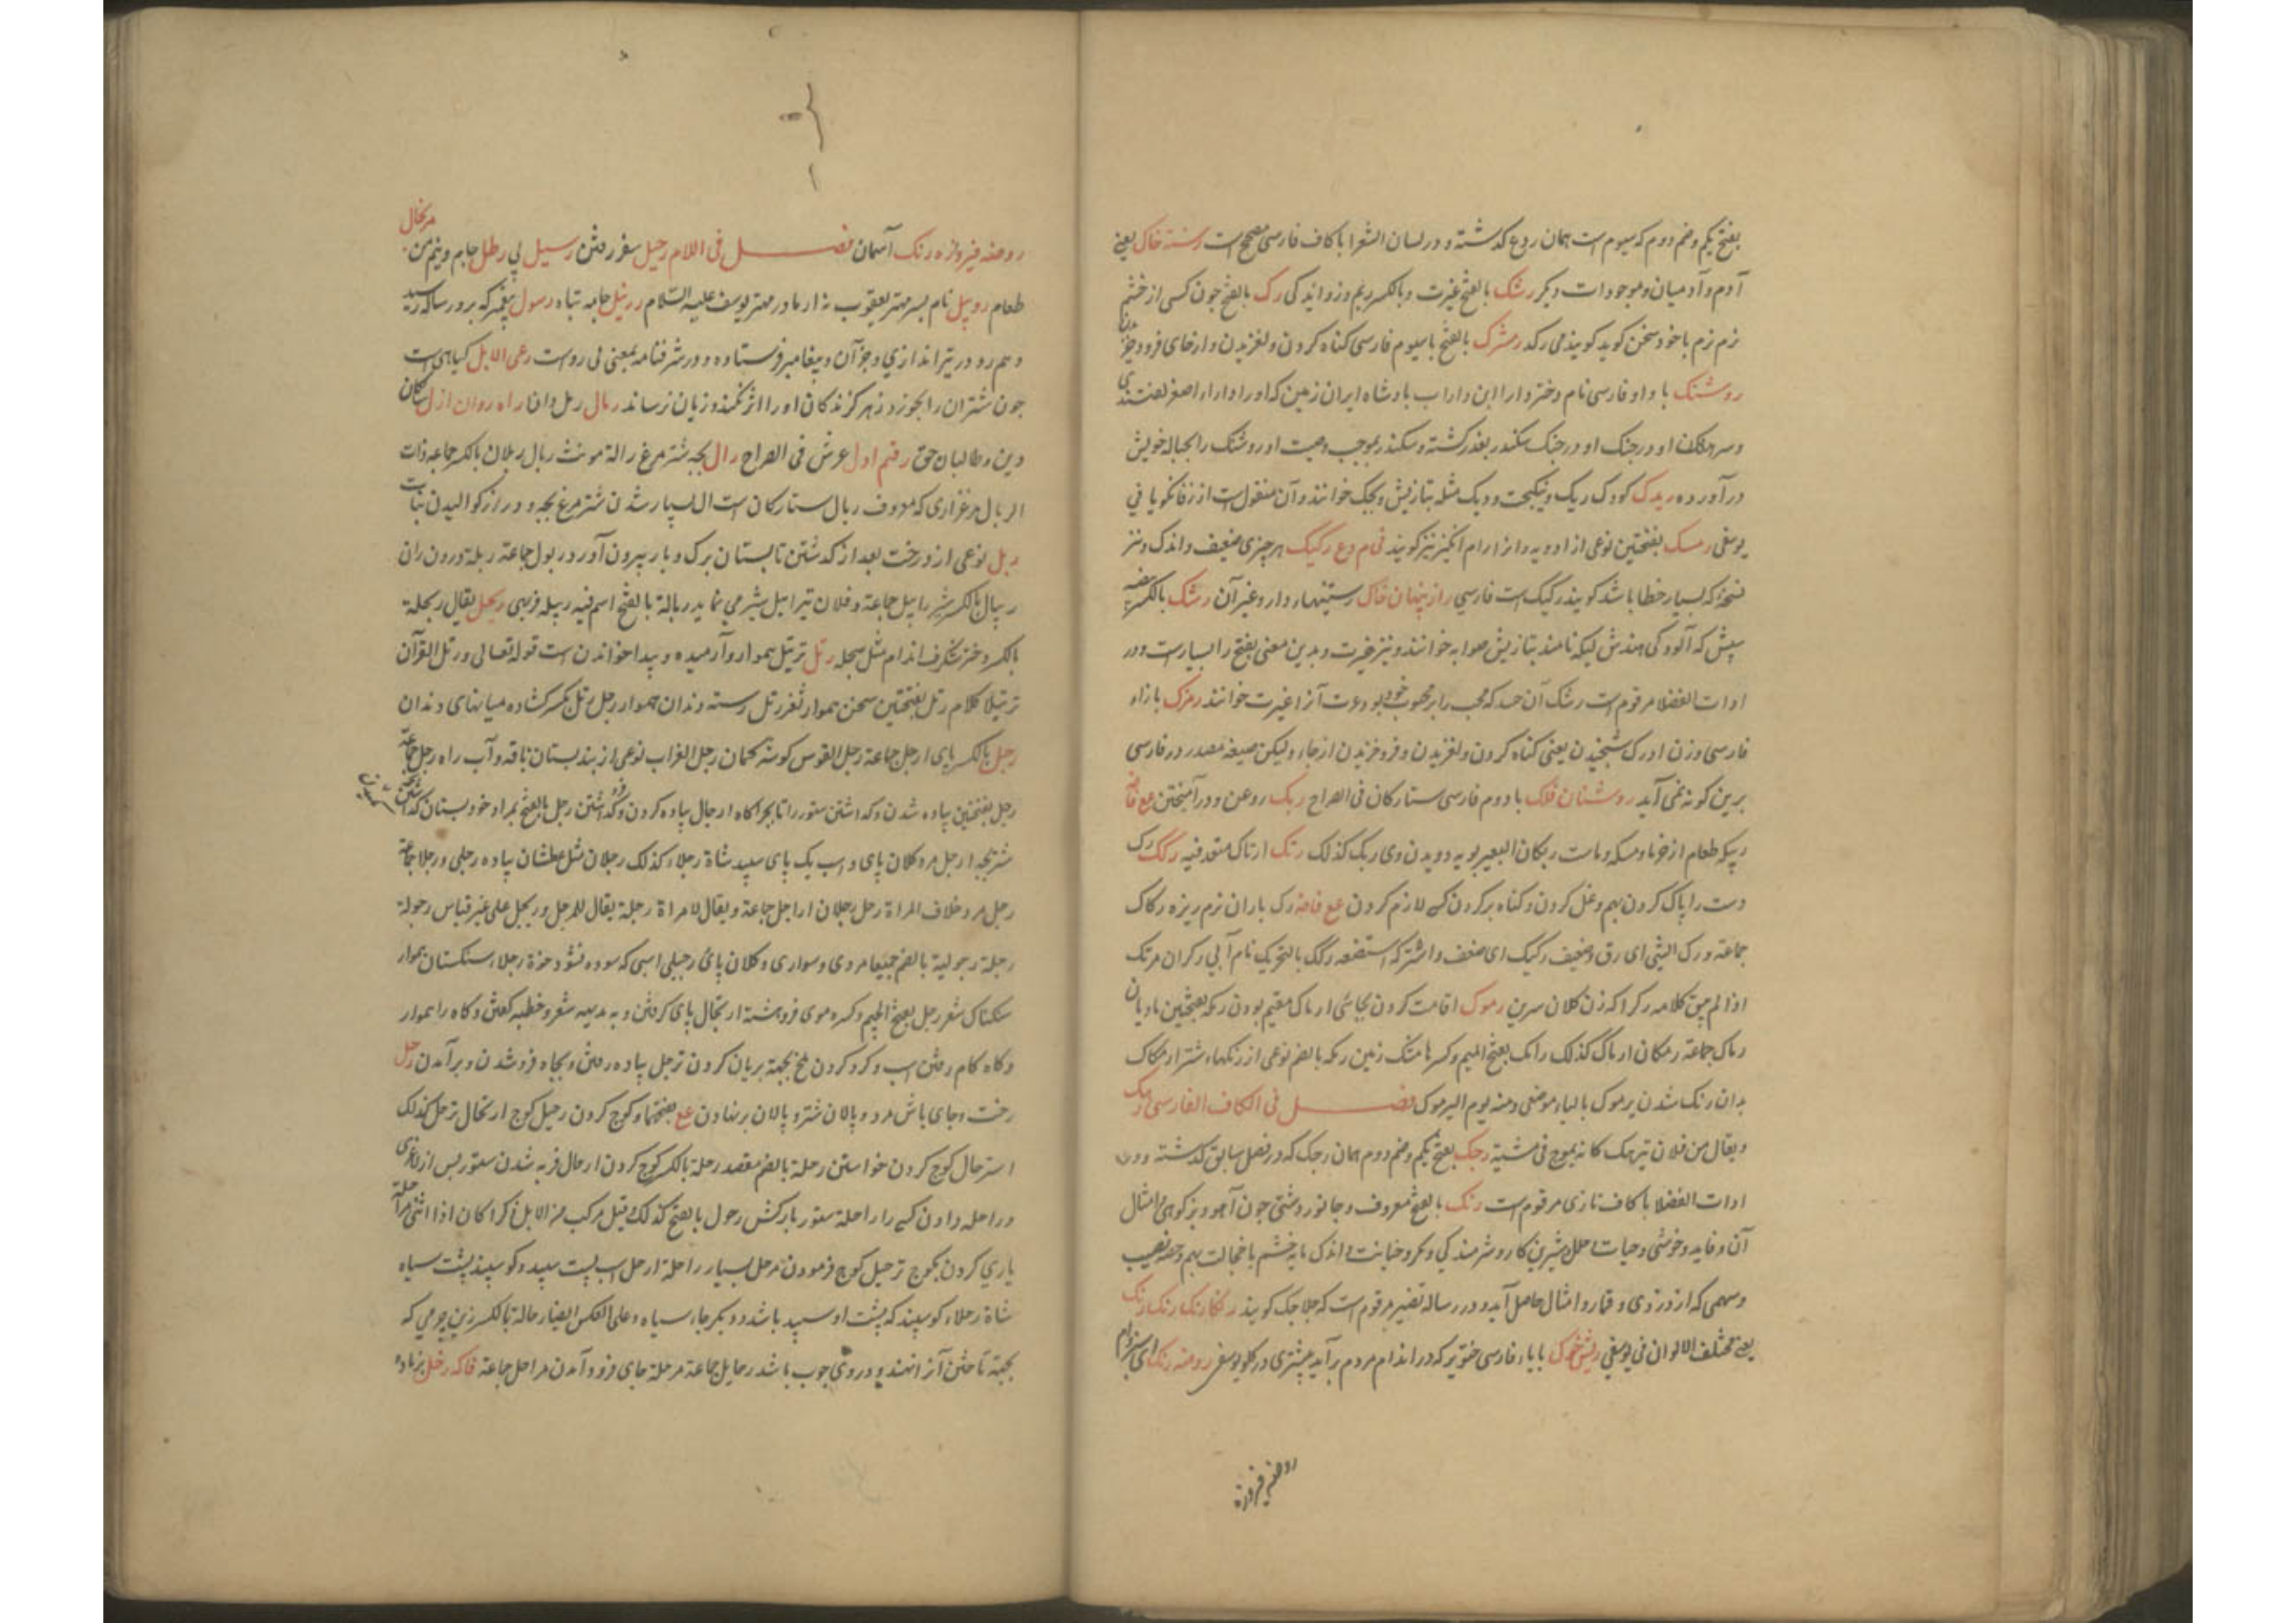 بفتح یکم و ضم دوم که سیوم است همان ردع گذشته و در لسان الشعرا با کاف فارسی مصحح است رسته خاک یعنی
آدم و آدمیان و موجودات دیگر رشک بالفتح غیرت و بالکسر ریم وزوایدکی رک بالفتح چون کسی از خشم
نرم نرم با خود سخن کوید کویند می رکد رشرک بالفتح با سیوم فارسی کناه کردن و لغزیدن و از جای فرود
روشنک با واو فارسی نام دختر دارا ابن داراب بادشاه ایران زمین که او را داراء اصغر
او در جنک او در جنک سکندر بغدر کشته و سکندر بموجب وصیت او روشنک را بحباله خویش
در آورده ریدک کودک ریک و نیکبخت و ویک مثله بتازیش ویحک خوانند و آن منقول است از زفانکویا فی
یوسفی رمسک بفتحتین نوعی از ادویه و انرا رام انکیز نیز کویند فی م وع رکیک هر چیزی ضعیف و اندک و نیز
که بسیار خطا باشد کویند رکیک است فارسی راز پنهان خاک رستنیها ر دار و غیر آن رشک بالکسر
سپش که آلودکی هندش لیکه نامند بتازیش صوابه خوانند و نیز غیرت و بدین معنی بفتح را بسیار است و در
ادات الفضلا مرقوم است رشک آن حسد که محب را بر محبوب خود بود و عرب آنرا غیرت خوانند رمزک بازاء
فارسی وزن ادرک شخیدن یعنی کناه کردن و لغزیدن و فرو خزیدن از جاء ولیکن صیغه مصدر در فارسی
برین کونه نمی آید روشنان فلک با دوم فارسی ستارکان فی الصراح ربک روغن و در آمیختن
ربیکه طعام از خرما و مسکه و ماست رتکان البعیر بویه دویدن وی رتک کذلک رتک ارتاک متعد فیه رکک رک
دست را پاک کردن بهم و غل کردن و کناه بر کردن کسی لازم کردن مع فاضه رک باران نرم ریزه رکاک
جماعة و رک الشئ ای رق و ضعیف رکیک ای ضعف و اشترکه استضعه رکک بالتحریک نام آبی رکران مرتک
اذا لم یبق کلامه رکراکه زن کلان سرین رموک اقامت کردن بجائی ارماک مقیم بودن رمکه بفتحتین مادیان
رماک جماعة رمکان ارماک کذلک رامک بفتح المیم و کسرها متک زمین رمکه بالضم نوعی از رنکهاء شتر ارمکاک
بدان رنک شدن یرموک بالیاء موضعی و منه یوم الیرموک فصــــل فی الکاف الفارسی رهک
و یقال من فلان تیرهک کانه یموج فی مشیته رجک بفتح یکم و ضم دوم همان رجک که در فصل سابق کذشته و در
ادات الفضلا با کاف تازی مرقوم است رنک بالفتح معروف و جانور دشتی چون آهو و بز کوهی و امثال
آن و فایده و خوشی و حیات و شیرین کار و شرمندکی و مکر و خیانت و اندک مایه خشم یا خجالت بهم و حصه نصیب
و سهمی که از دزدی و قمار و امثال حاصل آید و در رساله نصیر مرقوم است که جلا جک کویند رنکارنک رنک رنک
یعنی مختلف الالوان فی یوسفی ریش خوک با یاء فارسی خنزیر که در اندام مردم بر آید بیشتری در کلو یوسفی روضه رنک ای سبز فام
روضه فیروزه
مرتحال
روضه فیروزه رنک آسمان فصــــل فی اللام رحیل سفر رفتن رسیل پی رطل جام و نیم من
طعام روبیل نام پسر مهتر یعقوب نه از مادر مهتر یوسف علیه السلام ررتیل جامه تباه رسول پیغمبر که برو رساله رسید
و هم رو در تیراندازی و جزآن و پیغامبر فرستاده و در شرفنامه بمعنی لی روست رعی الابل کیاهی است
چون شتران را بخورد زهر کزندکان او را اثر نکند و زیان نرساند رمال رمل دان راه روان ازل سالکان
دین و طالبان حق رقم اول عرش فی الصراح رال بچه شترمرغ رالة مونث ریال ریلان بالکسر جماعة ذات
الریال مرغزاری که معروف ریال ستارکان است ال بسیار شدن شترمرغ بچه و درازکوالیدن نبات
ربل نوعی از درخت بعد از کذشتن تابستان برک و بار بیرون آورد ربول جماعة ربلة درون ران
ریبال بالکسر شیر رابیل جماعة و فلان تیرابیل شیر می نماید ربالة بالفتح اسم فیه ربیله فربهی ربحل یقال ربحلة
بالکسر دختر شکرف اندام مثل سبحله رتل ترتیل هموار و آرمیده و پیدا خواندن است قوله تعالی و رتل القرآن
ترتیلا کلام رتل بفتحتین سخن هموار ثغر رتل رسته دندان هموار رجل رتل بکسر کشاده میانهای دندان
رجل بالکسر پای ارجل جماعة رجل القوس کوشه کمان رجل الغراب نوعی از بند بستان ناقه و آب راه رجل جماعة
رجل بفتحتین پیاده شدن و کذاشتن ستور را تا بچراکاه ارجال پیاده کردن و کذاشتن رجل بالفتح بمراد خود بستان
شتر بچه ارجل مرد کلان پای و اسب یک پای سپید شاة رجلاء کذلک رجلان مثل عطشان پیاده رجلی و رجلا جماعة
رجل مرد خلاف المراة رجل رجلان اراجل جماعة و یقال للمراة رجلة یقال للرجل رویجل علی غیر قیاس رجولة
رجلة رجولیة بالضم جمیعا مردی و سواری و کلان پائی رجیلی اسپی که سوده نشود حرة رجلاء سنکستان هموار
سنکناک شعر رجل بفتح الجیم و کسره موی فروهشته ارتجال پای کرفتن و به بدیهه شعر و خطبه کفتن و کاه راهوار
و کاه کام رفتن اسب و کرد کردن ملخ بجهة بریان کردن ترجل پیاده رفتن و بچاه فرو شدن و برآمدن رحل
رخت و جای باش مرد و پالان شتر و پالان بر نهادن مع بفتحها و کوچ کردن رحیل کوچ ارتحال ترحل کذلک
استرحال کوچ کردن خواستن رحلة بالضم مقصد رحلة بالکسر کوچ کردن ارحال فربه شدن ستور پس از لاغری
و راحله دادن کسی را راحلة ستور بارکش رحول بالفتح کذلک و قیل مرکب من الابل ذکرا کان اذا انثی مراحلة
یاری کردن بکوچ ترحیل کوچ فرمودن مرحل بسیار راحلة ارحل اسب پشت سپید و کوسپند پشت سیاه
شاة رحلاء کوسپند که پشت او سپید باشد و دیکر جاء سیاه و علی العکس ایضا رحالة بالکسر زین چرمی که
بجهة تاختن آنرا نهند و دروی چوب باشد رحایل جماعة مرحلة جای فرود آمدن مراحل جماعة فاکه رخل بزماده